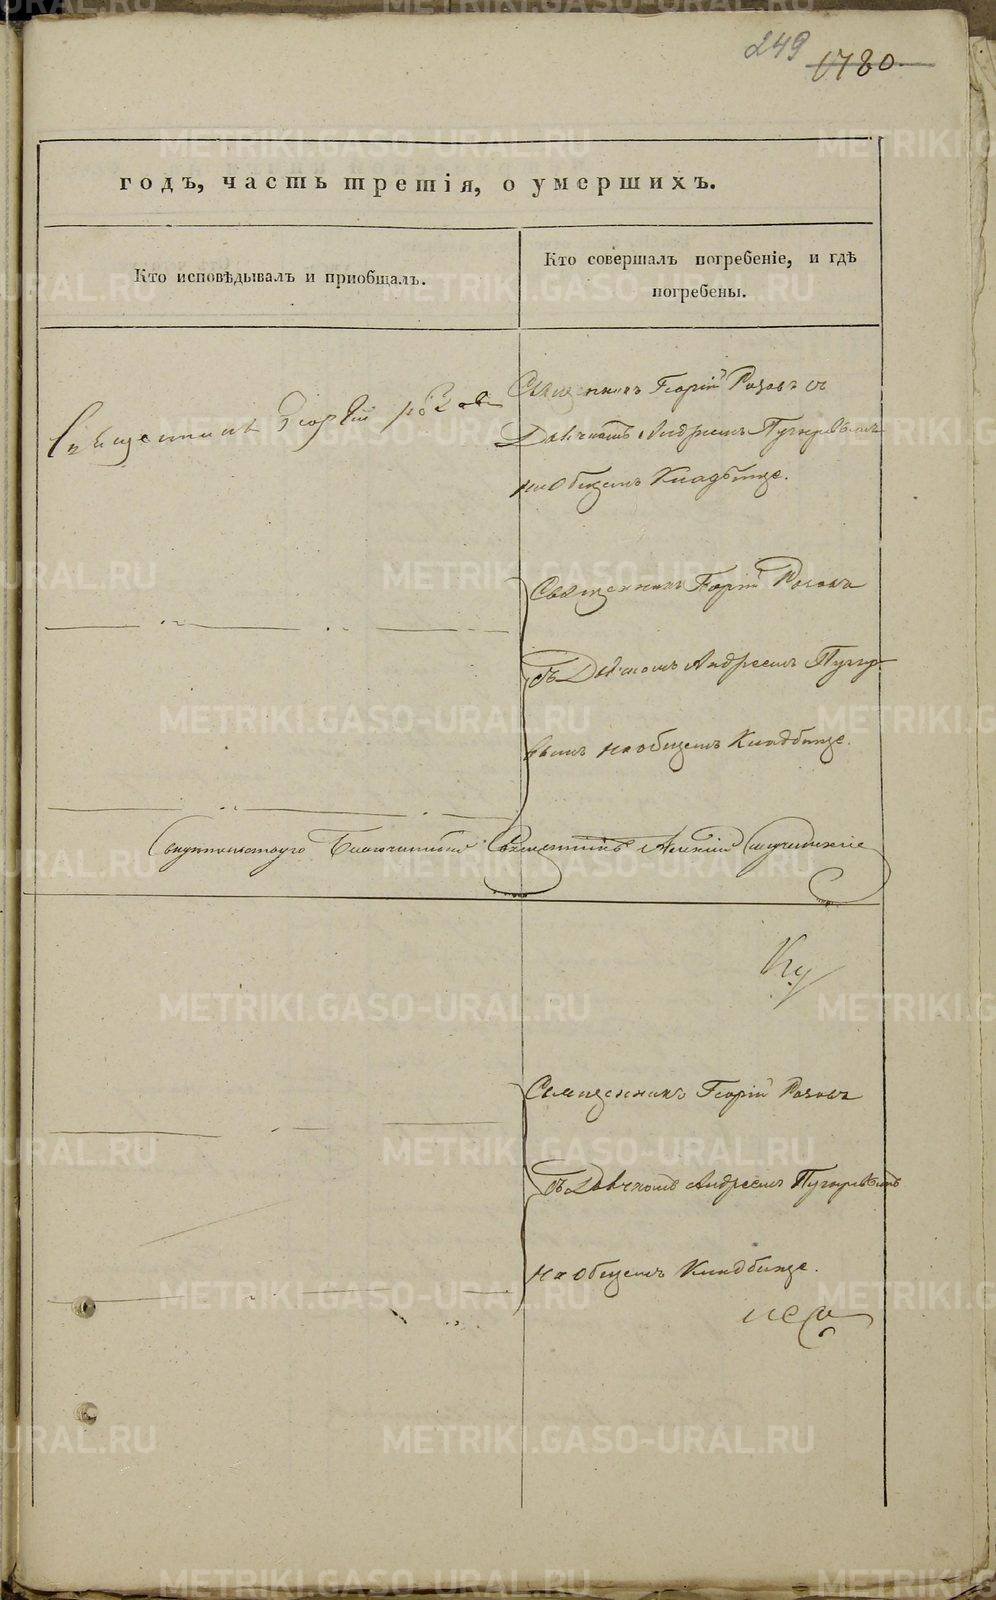 249 1780
годъ, часть третія, о умершихъ.
Кто исповѣдывалъ и приобщалъ.
Кто совершалъ погребеніе, и гдѣ
погребены.
Священникъ Георгій Розовъ
Священникъ Георгій Розовъ съ
Дьячкомъ Андреемъ Пузыревымъ
на Общемъ Кладбище.
Священникъ Георгій Розовъ
съ Дьячкомъ Андреемъ Пузыре
вымъ на общемъ Кладбище.
Священникъ Алексій
Священникъ Георгій Розовъ
съ Дьячкомъ Андреемъ Пузыревымъ
на Общемъ Кладбище.
METRIKI.GASO-URAL.RU